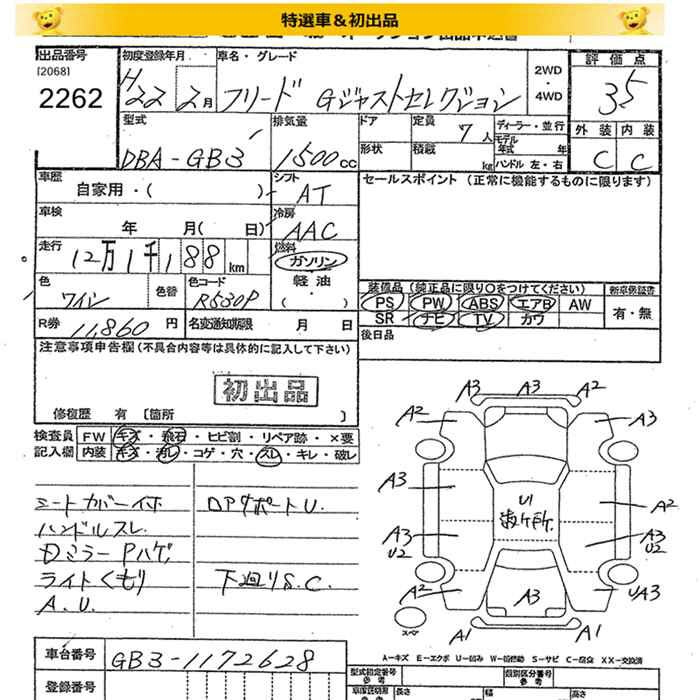 特選車＆初出品
出品番号
[2068]
2262
初度登録年月
H22 2月
車名・グレード
フリード Gジャストセレクション
2WD
・
4WD
評価点
3.5
外装 内装
C C
型式
DBA-GB3
排気量
1500cc
ドア
定員
7人
ディーラー・並行
モデル年式 年
形状
積載
kg
ハンドル 左・右
車歴
自家用・( )
シフト
AT
セールスポイント (正常に機能するものに限ります)
車検
年 月( 日)
冷房
AAC
走行
12万1千188km
燃料
ガソリン
軽油
・
( )
色
ワイン
色替
色コード
R530P
装備品 (純正品に限り○をつけてください)
新車保証書
PS PW ABS エアB AW
SR ナビ TV カワ
有・無
R券
11,860円
名変通知期限 月 日
後日品
注意事項申告欄 (不具合内容等は具体的に記入して下さい)
初出品
修復歴 有 [箇所 ]
検査員記入欄
FW キズ・飛石・ヒビ割・リペア跡・×要
内装 キズ・汚レ・コゲ・穴・スレ・キレ・破レ
シートカバー付
ハンドルスレ
Dミラー Pハゲ
ライトくもり
A.U.
DPサポートU.
下廻りS.C.
A3 A3 A2
A2 A3
A3
U1
数ヶ所
A2
A3
U2
A3
U2
A2 UA3
A3
スペア
A1 A1
A－キズ E－エクボ U－凹み W－補修跡 S－サビ C－腐食 XX－交換済
車台番号
GB3-1172628
登録番号
型式指定番号
参考
類別区分番号
参考
長さ
幅
高さ